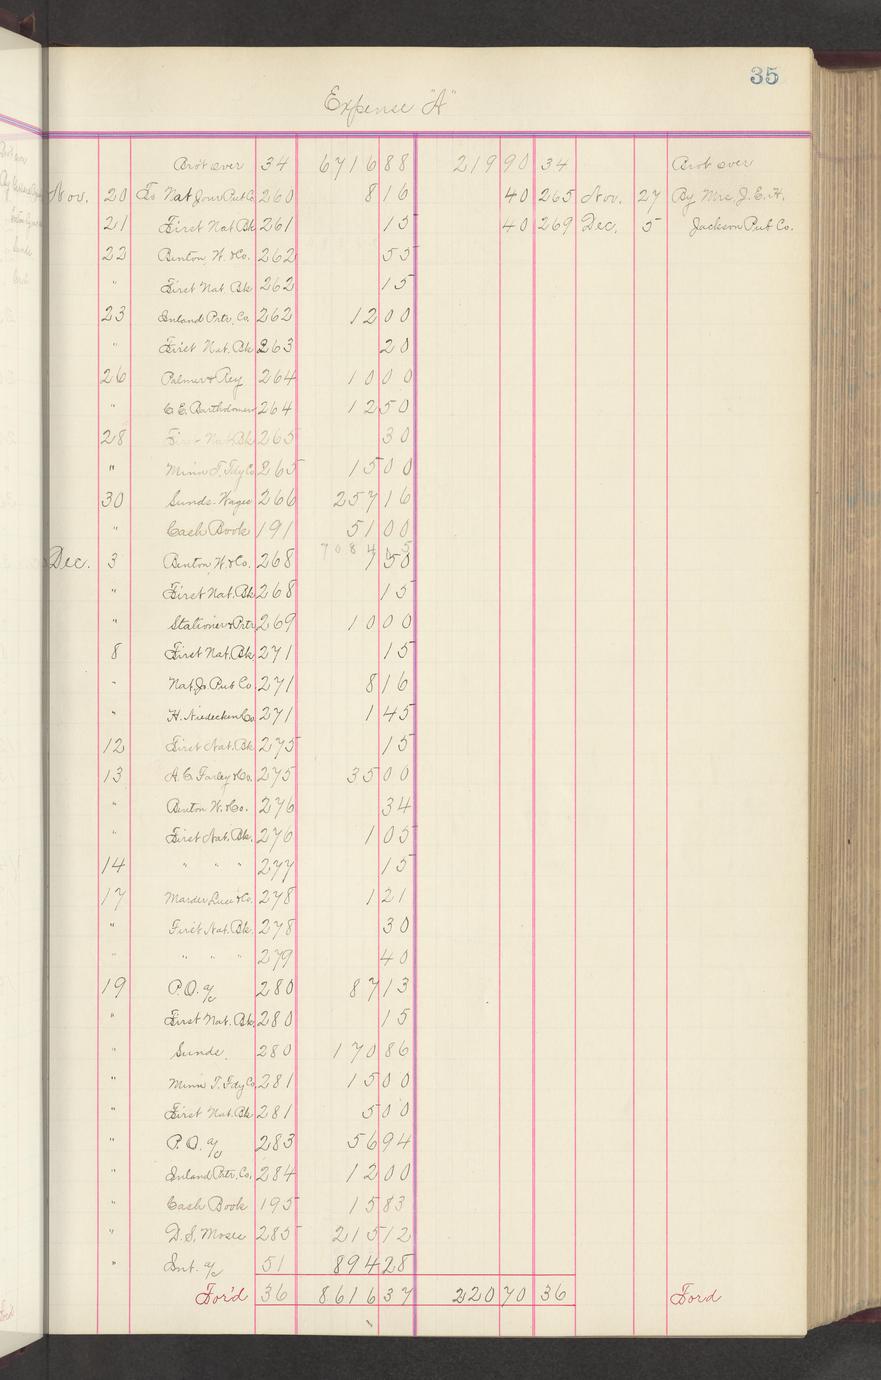 35
Expense "A"
Brot over 34 6716 88 219 90 34 Brot over
Nov. 20 To Nat Jour Pub Co. 260 8 16 40 265 Nov. 27 By Mrs. J. E. H.
21 First Nat Bk 261 15 40 269 Dec. 5 Jackson Pub Co.
22 Benton, W. & Co. 262 55
" First Nat Bk 262 15
23 Inland Prtr. Co. 262 12 00
" First Nat. Bk 263 20
26 Palmer & Rey 264 10 00
" C. E. Bartholomew 264 12 50
28 First Nat Bk 265 30
" Minn T. Fdy Co 265 15 00
30 Sunds. Wages 266 257 16
" Cash Book 191 51 00
7084 15
Dec. 3 Benton W. & Co. 268 7 50
" First Nat. Bk 268 15
" Stationer & Prtr 269 10 00
8 First Nat. Bk 271 15
" Nat. Jo. Pub Co. 271 8 16
" H. Niedecken Co 271 1 45
12 First Nat. Bk 275 15
13 A. C. Farley & Co. 275 35 00
" Benton W. & Co. 276 34
" First Nat. Bk. 276 1 05
14 " " " 277 15
17 Marder Luse & Co. 278 1 21
" First Nat. Bk. 278 30
" " " " 279 40
19 P.O. a/c 280 87 13
" First Nat. Bk. 280 15
" Sunds. 280 170 86
" Minn T. Fdy Co 281 15 00
" First Nat. Bk 281 5 00
" P.O. a/c 283 56 94
" Inland Prtr. Co. 284 12 00
" Cash Book 195 15 83
" D. S. Moses 285 215 12
" Int. a/c 51 894 28
For'd 36 8616 37 220 70 36 Ford